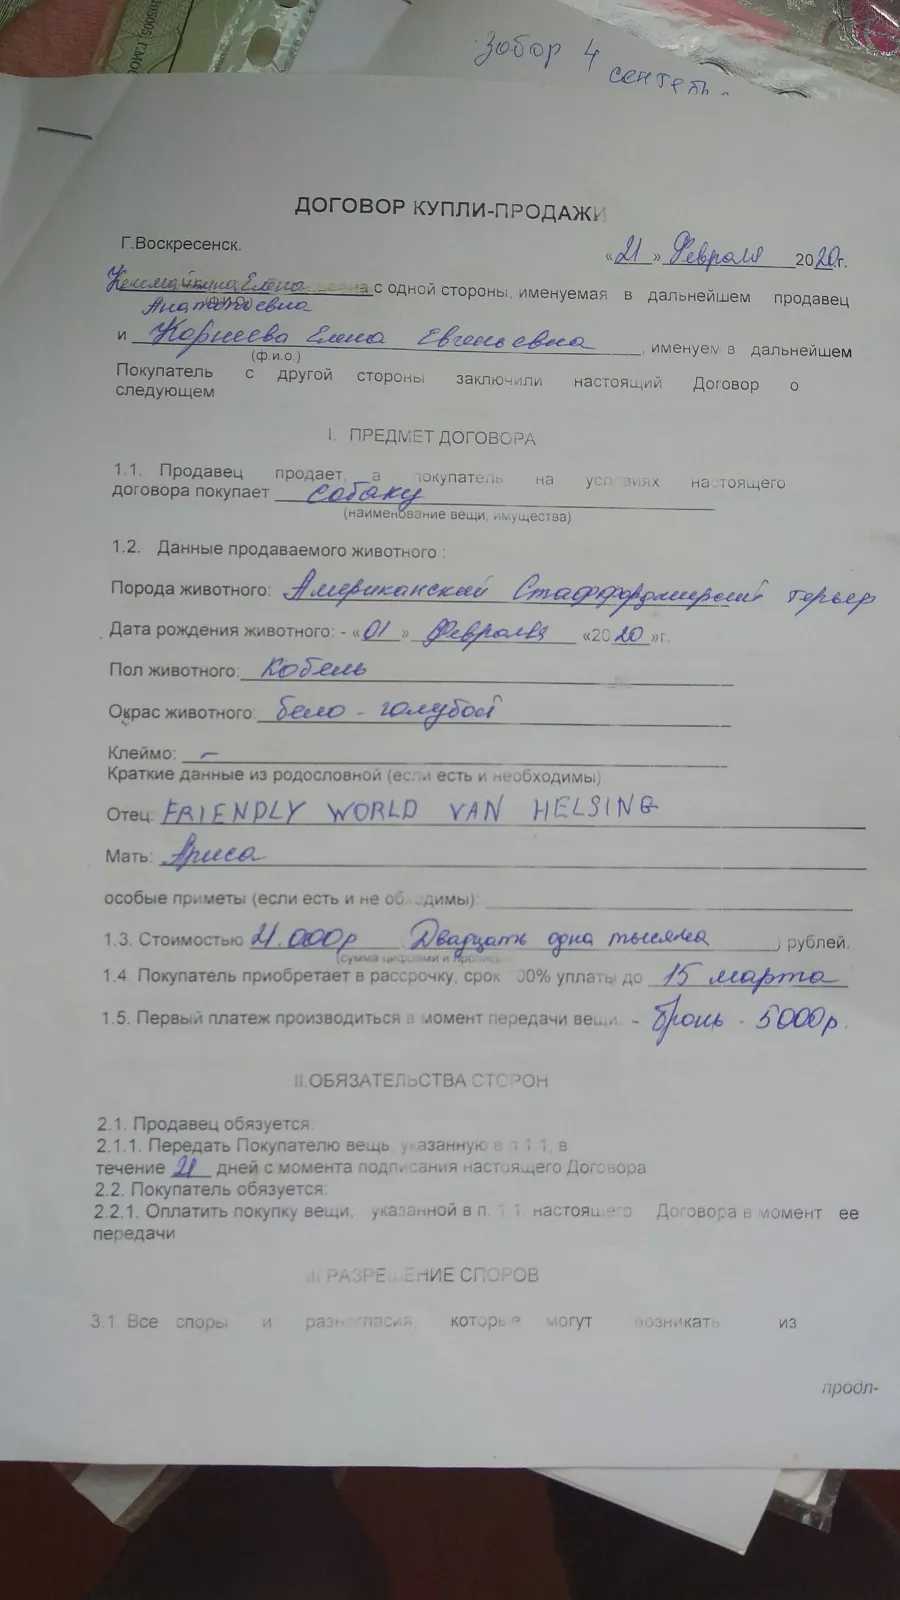 Забор 4
ДОГОВОР КУПЛИ-ПРОДАЖИ
Г.Воскресенск.
«21» Февраля 2020г.
Елена с одной стороны, именуемая в дальнейшем продавец
(ф.и.о.)
и Корнеева Елена Евгеньевна, именуем в дальнейшем
(ф.и.о.)
Покупатель с другой стороны заключили настоящий Договор о
следующем
I. ПРЕДМЕТ ДОГОВОРА
1.1. Продавец продает, а покупатель на условиях настоящего
договора покупает собаку
(наименование вещи, имущества)
1.2. Данные продаваемого животного :
Порода животного: Американский Стаффордширский терьер
Дата рождения животного: - «01» Февраля «2020»г.
Пол животного: Кобель
Окрас животного: бело - голубой
Клеймо: –
Краткие данные из родословной (если есть и необходимы)
Отец: FRIENDLY WORLD VAN HELSING
Мать: Ариса
особые приметы (если есть и не обходимы):
1.3. Стоимостью 21.000р Двадцать одна тысяча ) рублей.
(сумма цифрами и прописью
1.4. Покупатель приобретает в рассрочку, срок 100% уплаты до 15 марта
1.5. Первый платеж производиться в момент передачи вещи. - бронь - 5000р.
II.ОБЯЗАТЕЛЬСТВА СТОРОН
2.1. Продавец обязуется:
2.1.1. Передать Покупателю вещь, указанную в п.1.1, в
течение 21 дней с момента подписания настоящего Договора
2.2. Покупатель обязуется:
2.2.1. Оплатить покупку вещи, указанной в п. 1.1. настоящего Договора в момент ее
передачи
III РАЗРЕШЕНИЕ СПОРОВ
3.1. Все споры и разногласия, которые могут возникать из
продл-